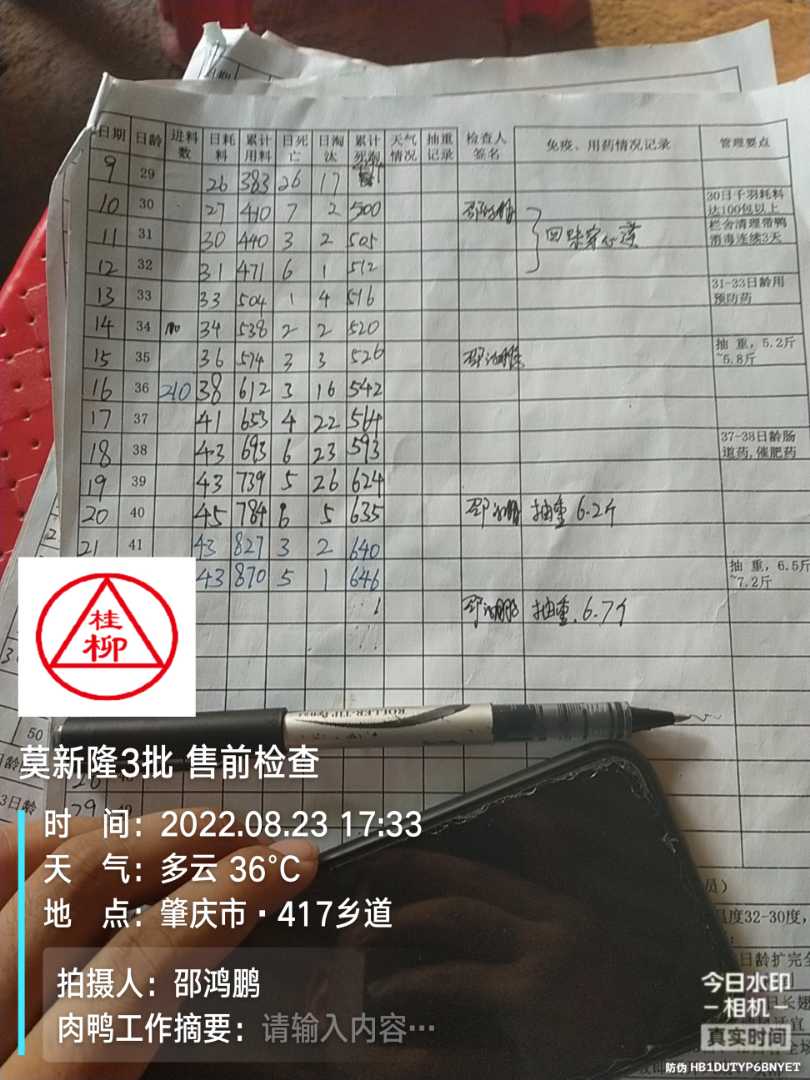 日期 日龄 进料数 日耗料 累计用料 日死亡 日淘汰 累计死淘 天气情况 抽重记录 检查人签名 免疫、用药情况记录 管理要点
9 29 26 383 26 17
10 30 27 410 7 2 500 30日千羽耗料达100包以上
11 31 30 440 3 2 505 栏舍清理带鸭消毒连续3天
12 32 31 471 6 1 512
13 33 33 504 1 4 516 31-33日龄用预防药
14 34 34 538 2 2 520
15 35 36 574 3 3 526 抽重,5.2斤~5.8斤
16 36 210 38 612 3 16 542
17 37 41 653 4 22 564
18 38 43 693 6 23 593 37-38日龄肠道药,催肥药
19 39 43 739 5 26 624
20 40 45 784 6 5 635 抽重 6.2斤
21 41 43 827 3 2 640
43 870 5 1 646 抽重,6.5斤~7.2斤
邵鸿鹏 抽重.6.7斤
桂柳
ROLLER-TIP
50
莫新隆3批 售前检查
3日龄
时 间：2022.08.23 17:33
天 气：多云 36°C
地 点：肇庆市·417乡道
员）
温度32-30度，
日龄扩完全
拍摄人：邵鸿鹏
肉鸭工作摘要：请输入内容…
今日水印
相机
真实时间
防伪 HB1DUTYP6BNYET